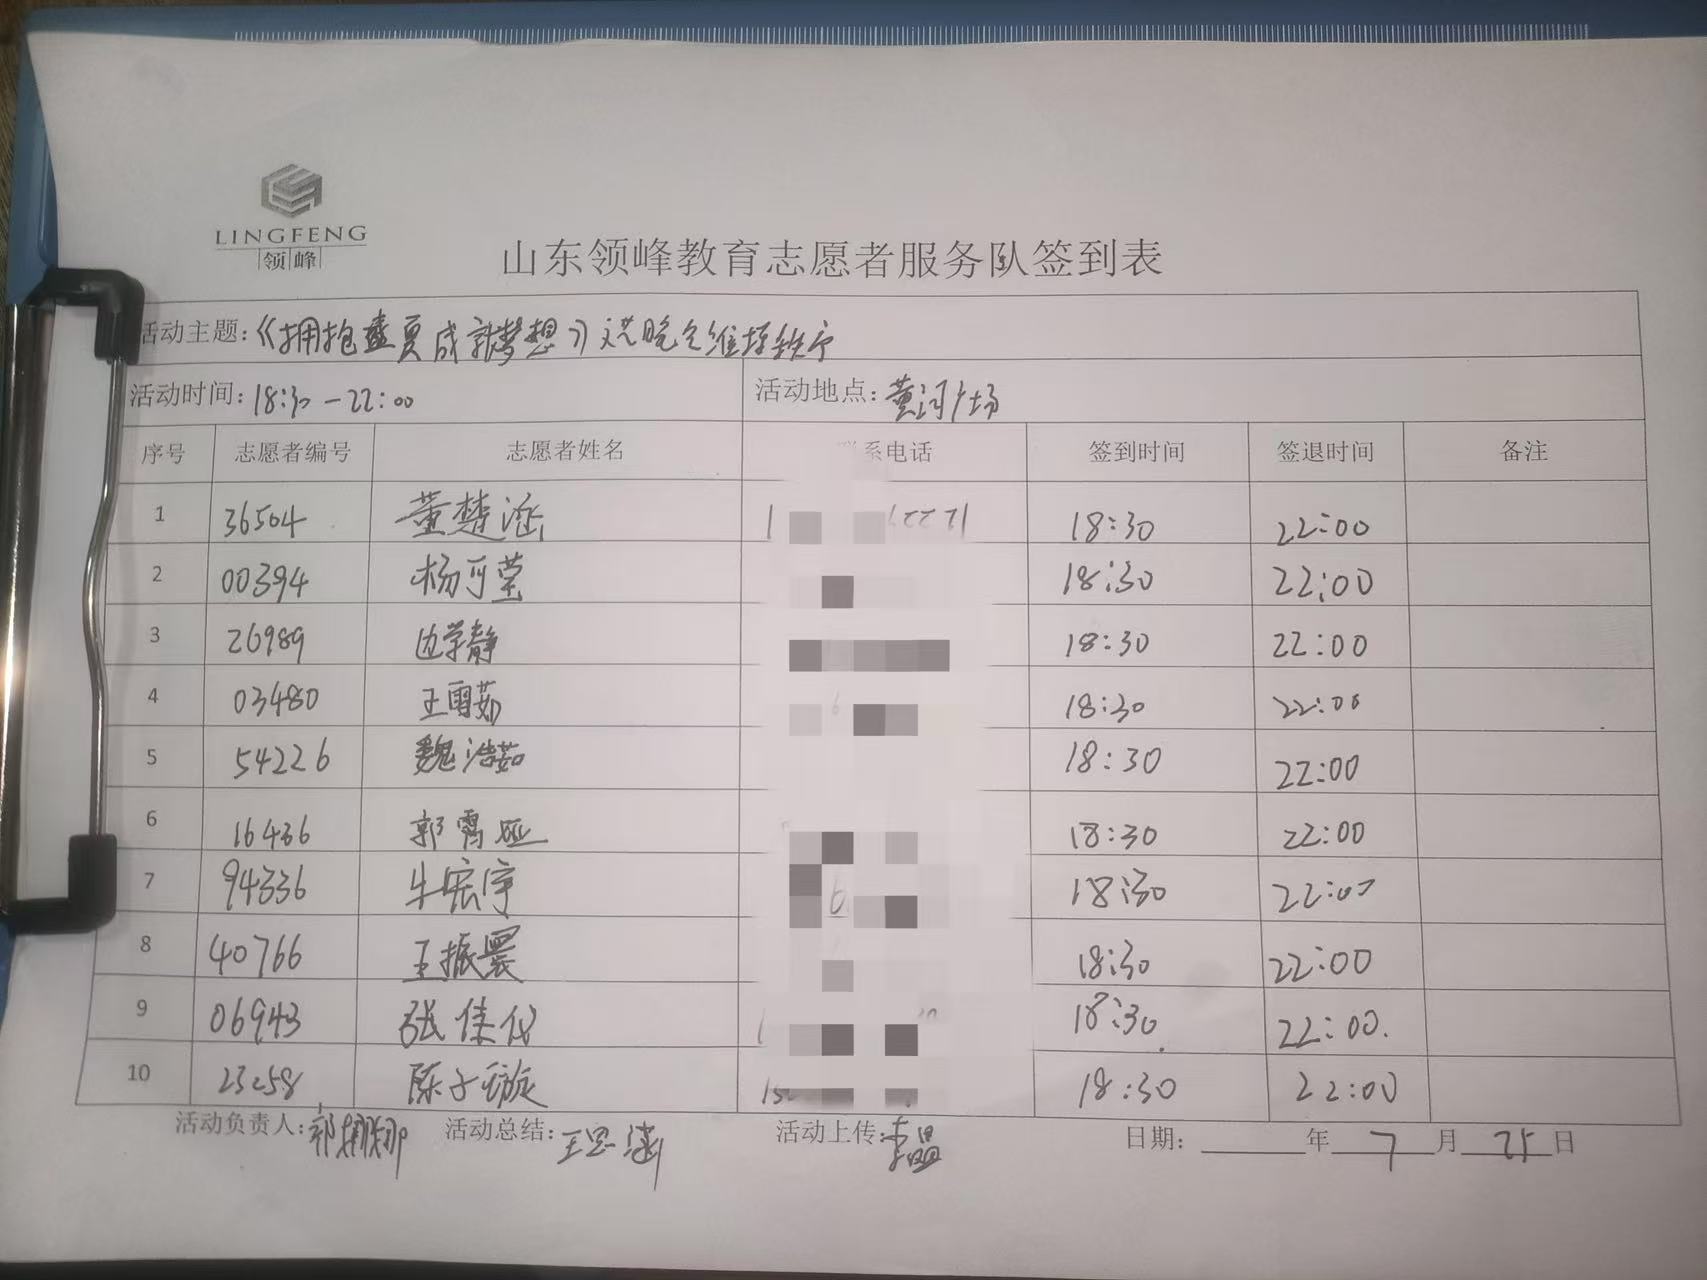 LINGFENG
领峰
山东领峰教育志愿者服务队签到表
活动主题:《拥抱盛夏成就梦想》文艺晚会维持秩序
活动时间:18:30-22:00 活动地点:黄河广场
序号 志愿者编号 志愿者姓名 系电话 签到时间 签退时间 备注
1 36504 董楚涵 1 18:30 22:00
2 00394 杨可莹 18:30 22:00
3 26989 边学静 18:30 22:00
4 03480 王雪茹 18:30 22:00
5 54226 魏浩茹 18:30 22:00
6 16436 郭霄 18:30 22:00
7 94336 牛宏宇 18:30 22:00
8 40766 王振 18:30 22:00
9 06943 张佳仪 18:30 22:00.
10 23258 陈子璇 18:30 22:00
活动负责人:郭娜娜 活动总结:王思涵 活动上传:李 日期: 年 7 月 25 日